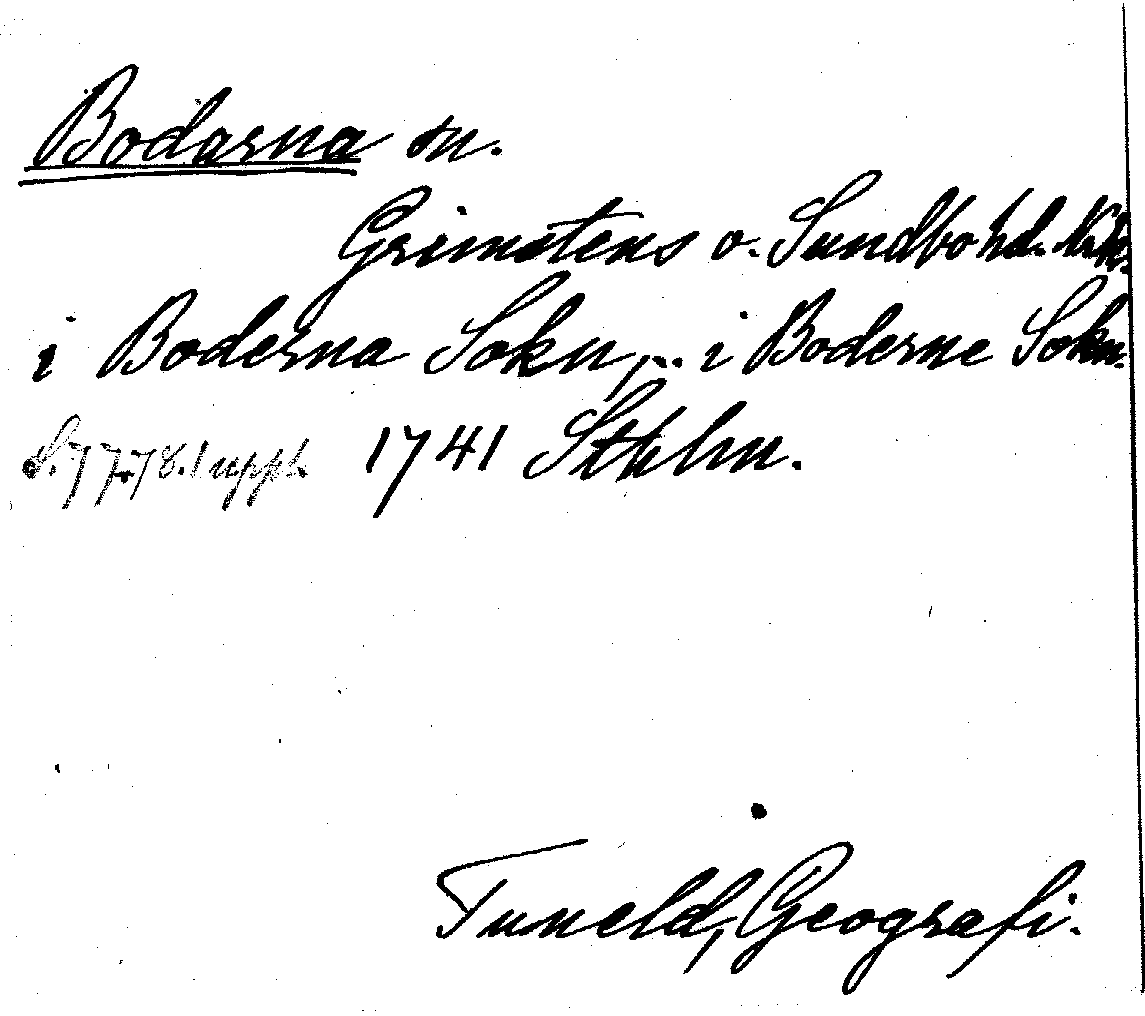 Bodarna sn.
Grimstens o. Sundbo hd. Nrke.
i Boderna Sokn, ... i Boderne Sokn.
S. 77-78. 1 uppl. 1741 Sthlm.
Tuneld, Geografi.